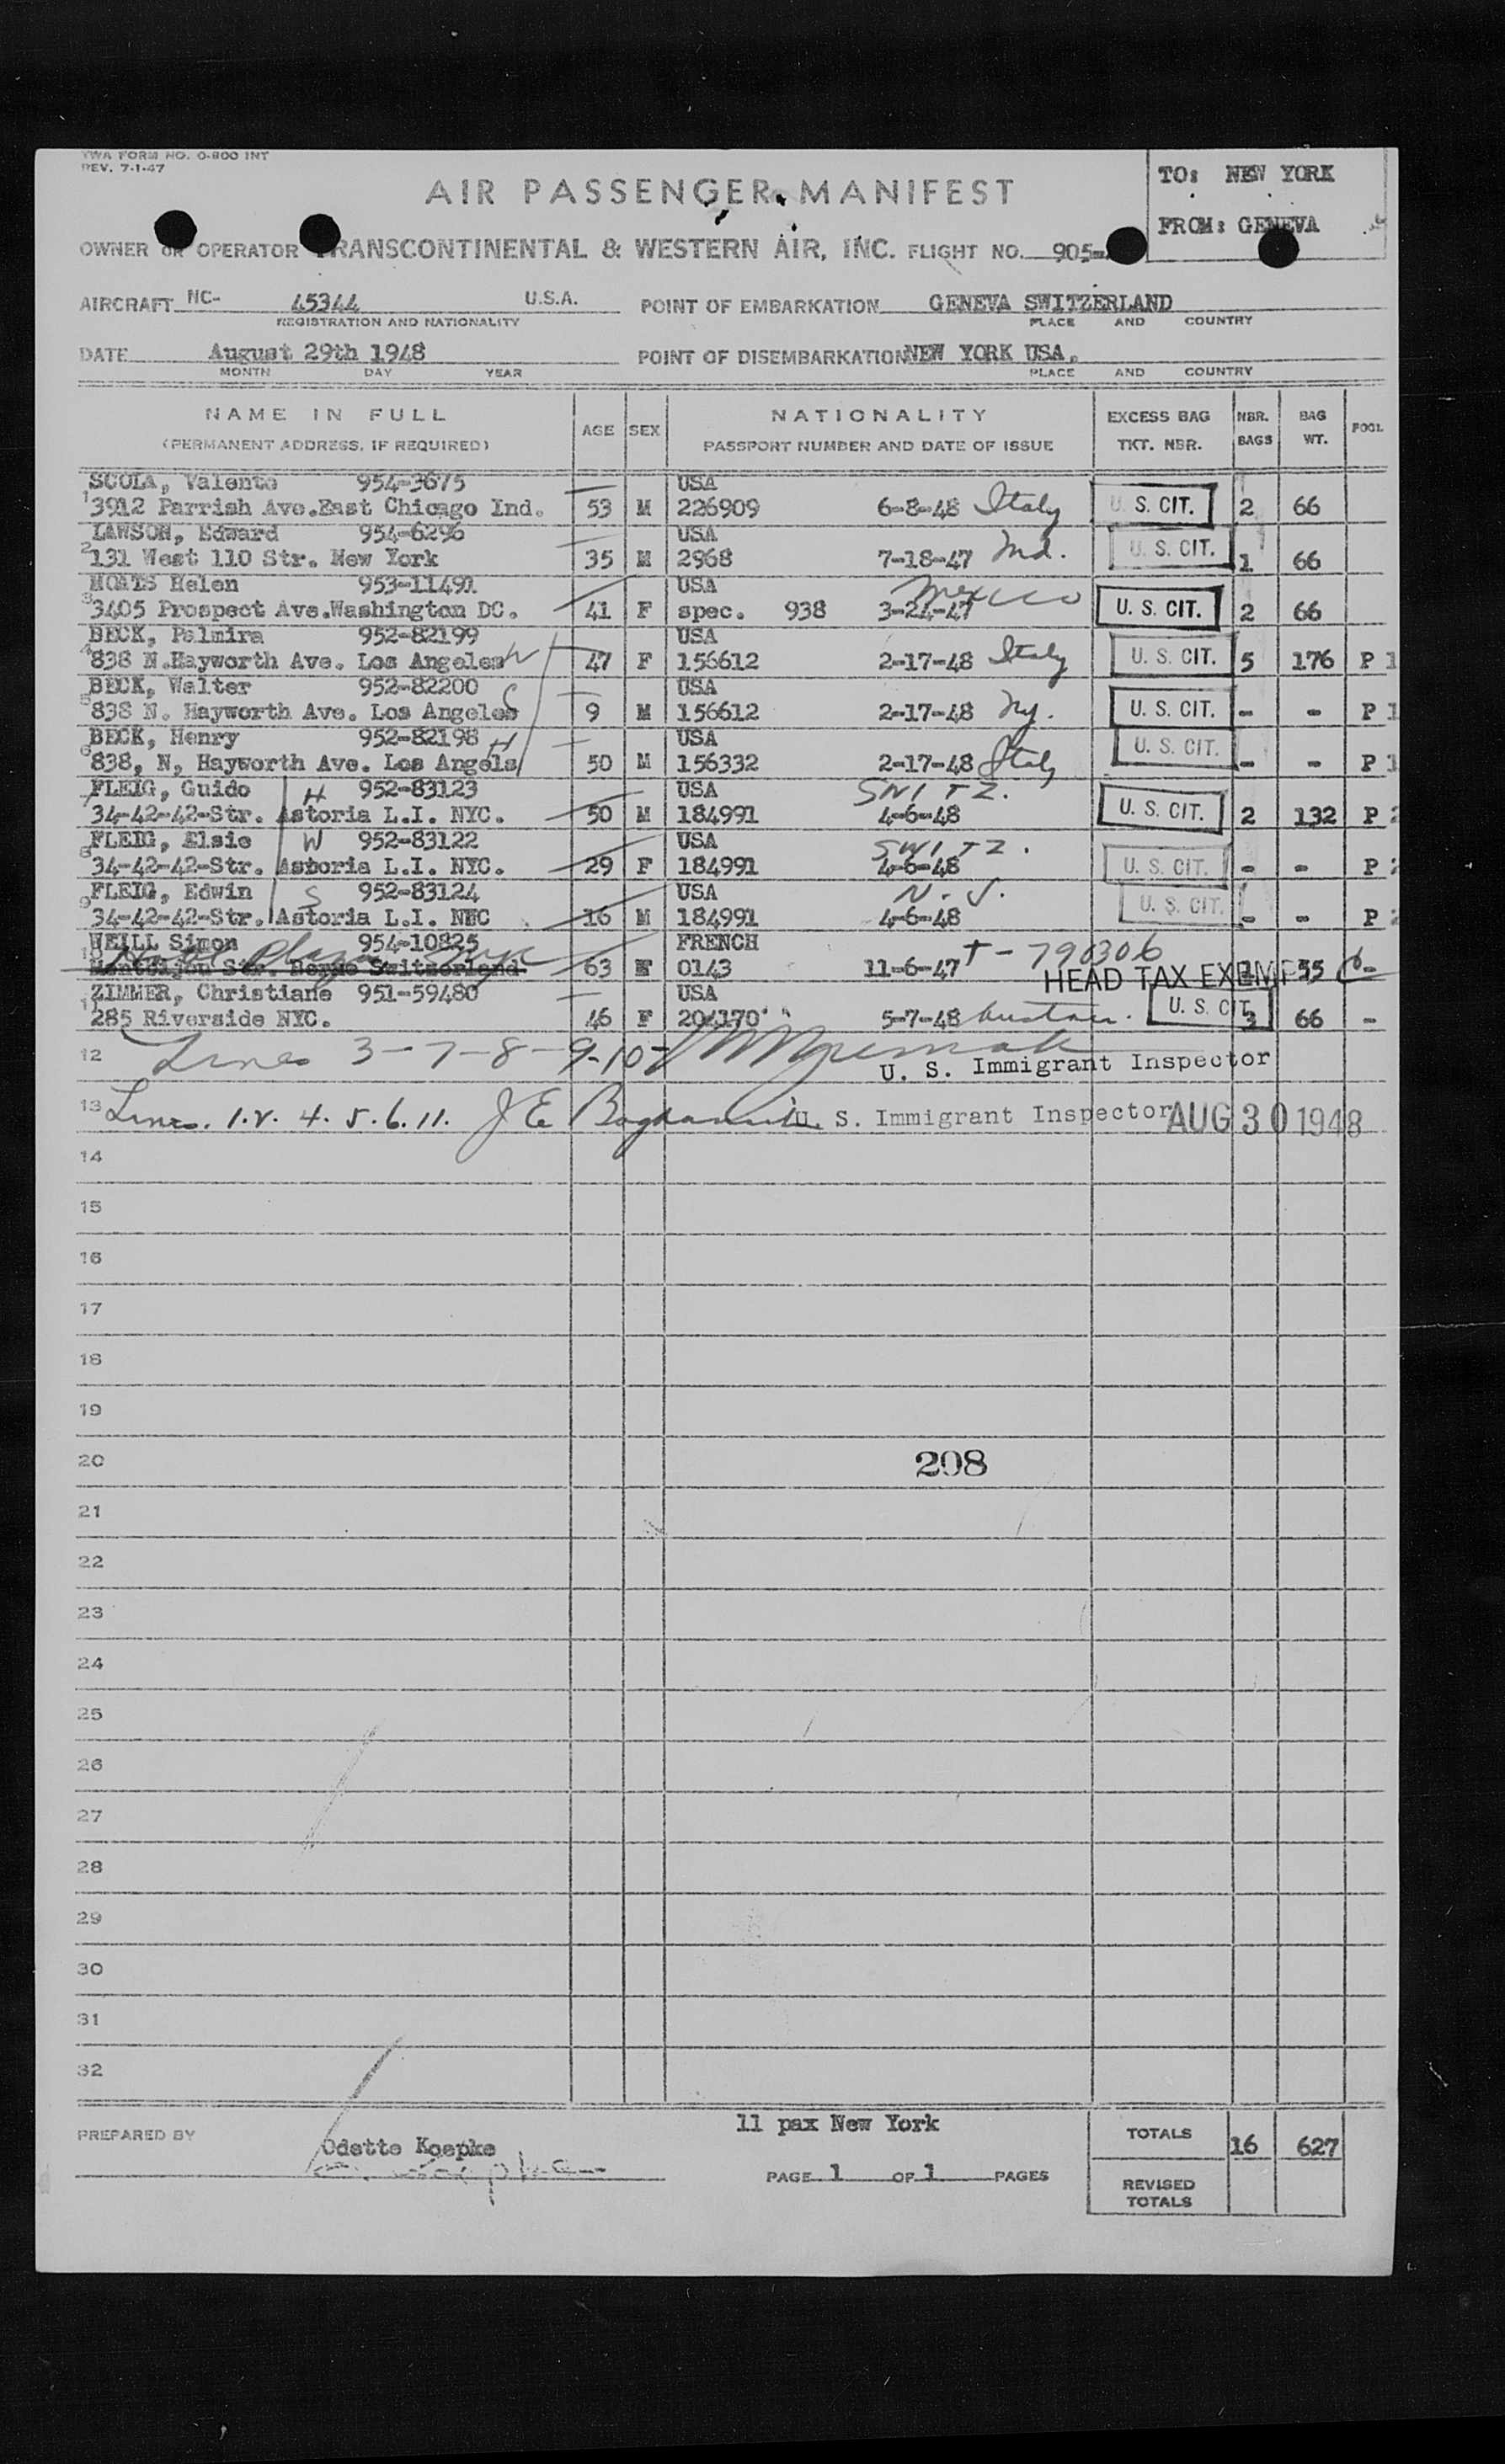 TWA FORM NO. O-800 INT
REV. 7-1-47
AIR PASSENGER MANIFEST
TO: NEW YORK
FROM: GENEVA
OWNER OR OPERATOR TRANSCONTINENTAL & WESTERN AIR, INC. FLIGHT NO. 905-
AIRCRAFT NC- 45344 U.S.A. POINT OF EMBARKATION GENEVA SWITZERLAND
REGISTRATION AND NATIONALITY PLACE AND COUNTRY
DATE August 29th 1948 POINT OF DISEMBARKATION NEW YORK USA.
MONTH DAY YEAR PLACE AND COUNTRY
NAME IN FULL AGE SEX NATIONALITY EXCESS BAG NBR. BAG POOL
(PERMANENT ADDRESS, IF REQUIRED) PASSPORT NUMBER AND DATE OF ISSUE TKT. NBR. BAGS WT.
SCOLA, Valento 954-3675 USA
1 3912 Parrish Ave.East Chicago Ind. 53 M 226909 6-8-48 Italy U. S. CIT. 2 66
LAWSON, Edward 954-6296 USA
2 131 West 110 Str. New York 35 M 2968 7-18-47 Md. U. S. CIT. 1 66
MOATS Helen 953-11491 USA Mexico
3 3405 Prospect Ave.Washington DC. 41 F spec. 938 3-24-47 U. S. CIT. 2 66
BECK, Palmira 952-82199 USA
4 838 N.Hayworth Ave. Los Angeles W 47 F 156612 2-17-48 Italy U. S. CIT. 5 176 P 1
BECK, Walter 952-82200 S USA
5 838 N. Hayworth Ave. Los Angeles 9 M 156612 2-17-48 Ny. U. S. CIT. - - P 1
BECK, Henry 952-82198 H USA
6 838, N, Hayworth Ave. Los Angels 50 M 156332 2-17-48 Italy U. S. CIT. - - P 1
FLEIG, Guido H 952-83123 USA SWITZ.
7 34-42-42-Str. Astoria L.I. NYC. 50 M 184991 4-6-48 U. S. CIT. 2 132 P 2
FLEIG, Elsie W 952-83122 USA SWITZ.
8 34-42-42-Str. Astoria L.I. NYC. 29 F 184991 4-6-48 U. S. CIT. - - P 2
FLEIG, Edwin S 952-83124 USA N. J.
9 34-42-42-Str. Astoria L.I. NYC 16 M 184991 4-6-48 U. S. CIT. - - P 2
WEILL Simon 954-10825 FRENCH T-790306
10 Hotel Plaza Switzerland 63 0143 11-6-47 HEAD TAX EXEMPT 1 55 -
ZIMMER, Christiane 951-59480 USA
11 285 Riverside NYC. 46 F 204170 5-7-48 Austria. U. S. CIT. 3 66 -
12 Lines 3-7-8-9-10- U. S. Immigrant Inspector
13 Lines. 1.2. 4. 5. 6. 11. J E U. S. Immigrant Inspector AUG 30 1948
14
15
16
17
18
19
20 208
21
22
23
24
25
26
27
28
29
30
31
32
11 pax New York
PREPARED BY Odette Koepke TOTALS 16 627
PAGE 1 OF 1 PAGES
REVISED
TOTALS